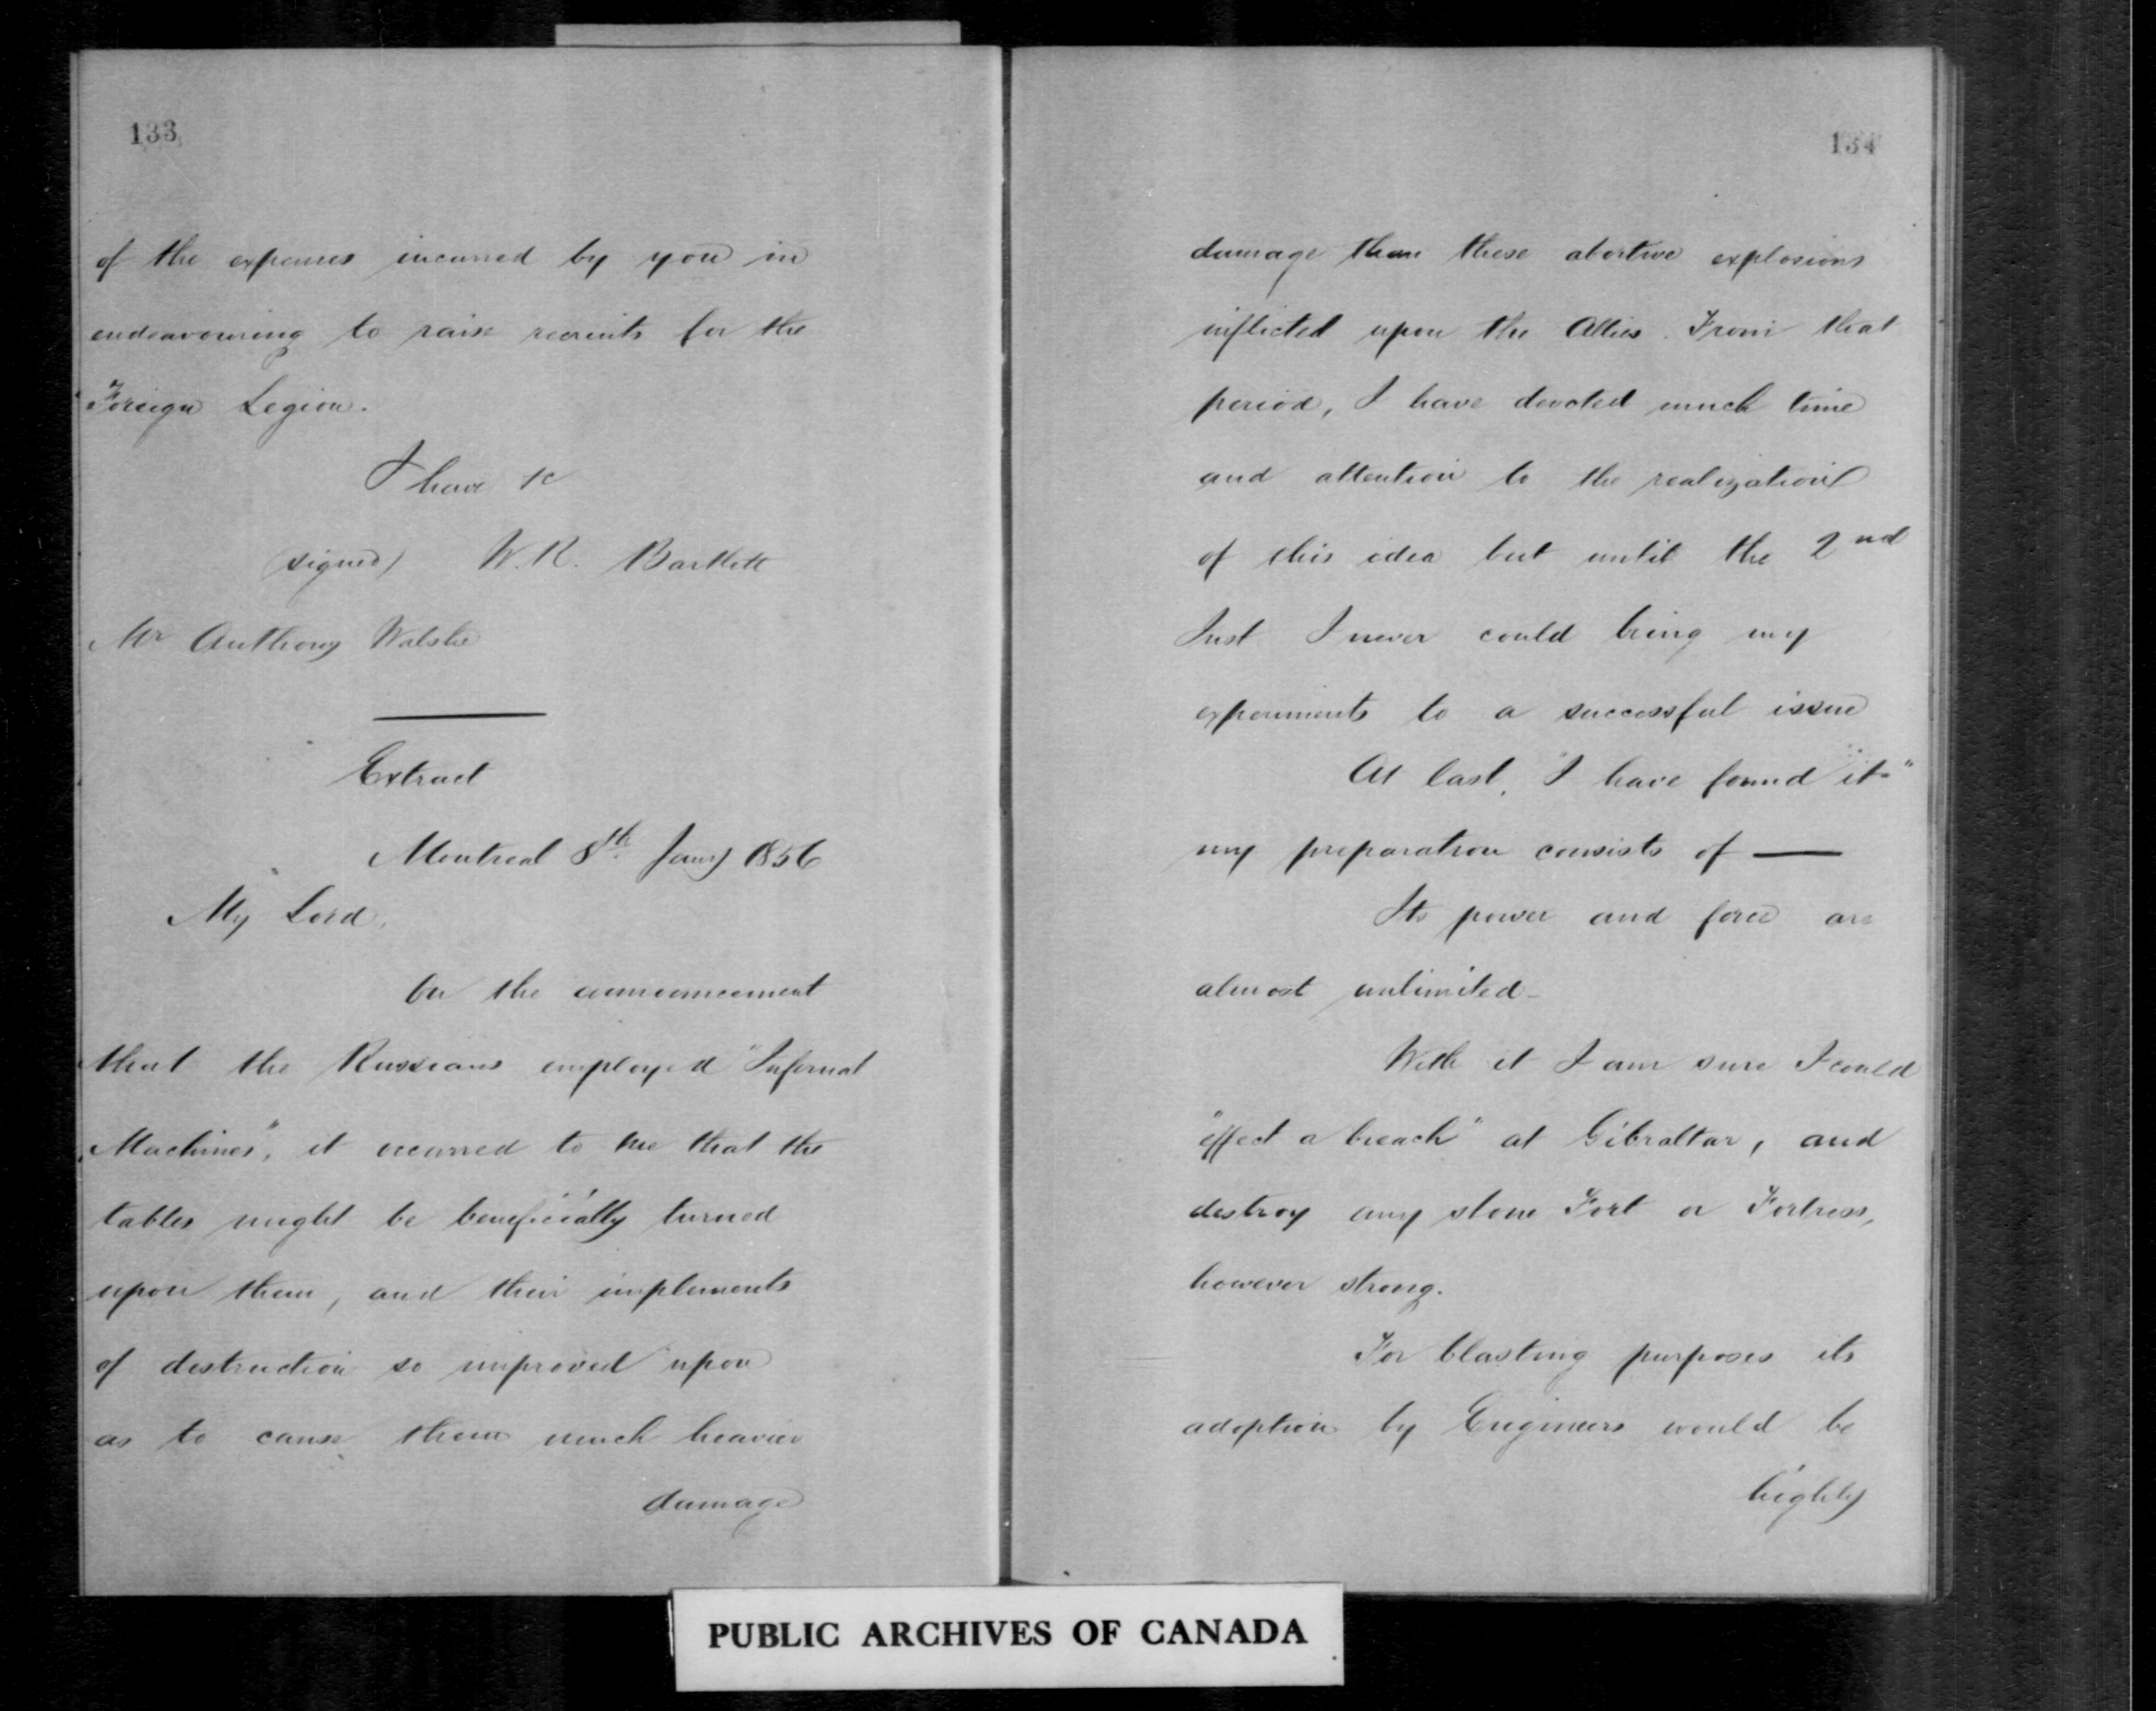 133
of the expenses incurred by you in
endeavouring to raise recruits for the
Foreign Legion.
I have &c
(signed) W. R. Bartlett
Mr Anthony Walshe
Extract
Montreal 8th. Jany 1856
My Lord,
On the announcement
that the Russians employed "Infernal
Machines", it occurred to me that the
tables might be beneficially turned
upon them, and their implements
of destruction so improved upon
as to cause them much heavier
damage
134
damage than these abortive explosions
inflicted upon the Allies. From that
period, I have devoted much time
and attention to the realization
of this idea but until the 2nd
Inst. I never could bring my
experiments to a successful issue
At last, "I have found "it"
my preparation consists of —
Its power and force are
almost unlimited–
With it I am sure I could
"effect a breach" at Gibraltar, and
destroy any stone Fort or Fortress,
however strong.
For blasting purposes its
adoption by Engineers would be
highly
PUBLIC ARCHIVES OF CANADA